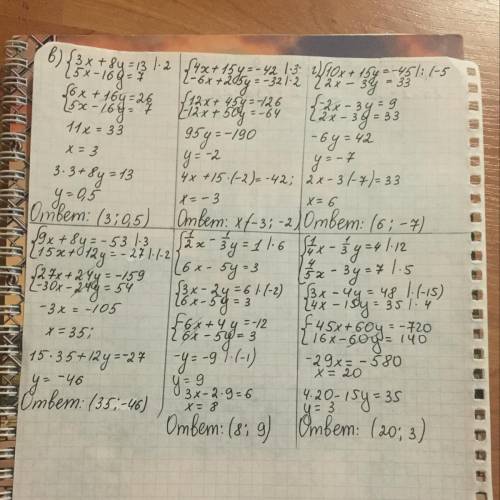 в) {3x + 8y = 13 |·2
{5x - 16y = 7
{6x + 16y = 26
{5x - 16y = 7
11x = 33
x = 3
3·3 + 8y = 13
y = 0,5
Ответ: (3; 0,5)
{4x + 15y = -42 |·3
{-6x + 25y = -32 |·2
{12x + 45y = -126
{-12x + 50y = -64
95y = -190
y = -2
4x + 15·(-2) = -42;
x = -3
Ответ: x(-3; -2)
г) {10x + 15y = -45 |:(-5
{2x - 3y = 33
{-2x - 3y = 9
{2x - 3y = 33
-6y = 42
y = -7
2x - 3(-7) = 33
x = 6
Ответ: (6; -7)
{9x + 8y = -53 |·3
{15x + 12y = -27 |·(-2
{27x + 24y = -159
{-30x - 24y = 54
-3x = -105
x = 35;
15·35 + 12y = -27
y = -46
Ответ: (35; -46)
{1/2x - 1/3y = 1 |·6
{6x - 5y = 3
{3x - 2y = 6 |·(-2)
{6x - 5y = 3
{6x + 4y = -12
{6x - 5y = 3
-y = -9 |·(-1)
y = 9
3x - 2·9 = 6
x = 8
Ответ: (8; 9)
{1/4x - 1/3y = 4 |·12
{4/5x - 3y = 7 |·5
{3x - 4y = 48 |·(-15)
{4x - 15y = 35 |·4
{-45x + 60y = -720
{16x - 60y = 140
-29x = -580
x = 20
4·20 - 15y = 35
y = 3
Ответ: (20; 3)